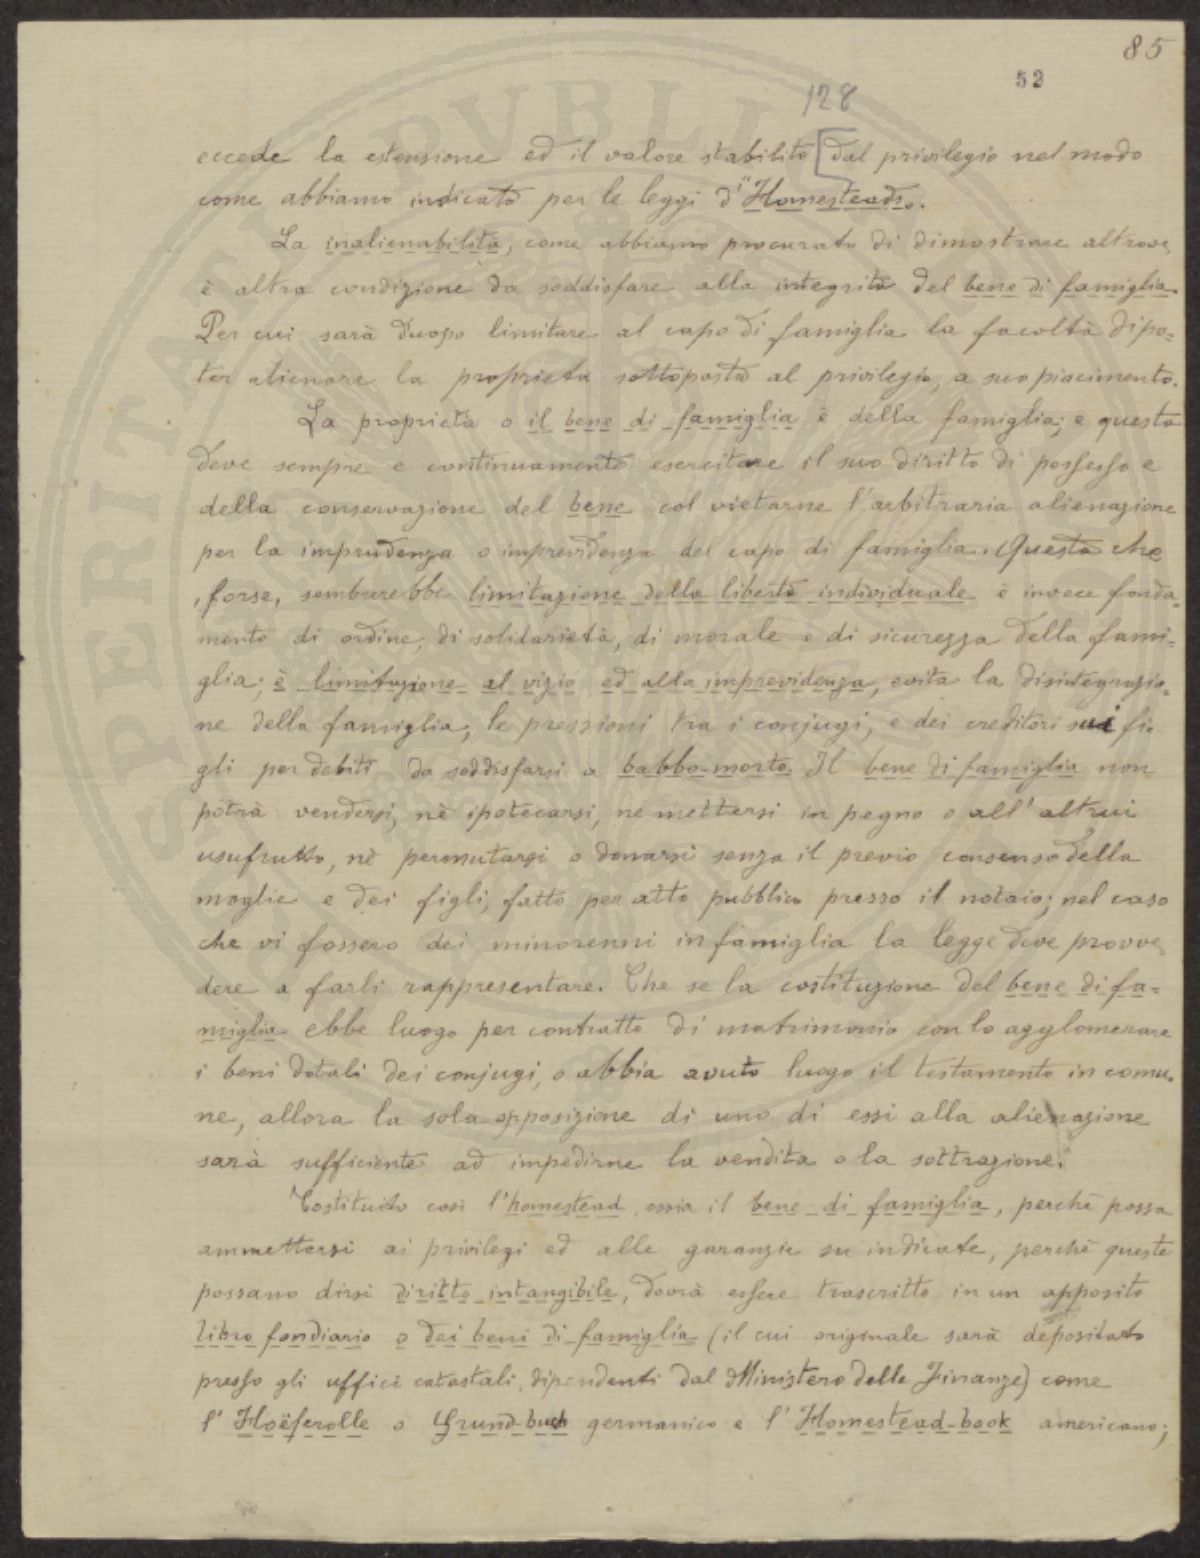 85
52
128
eccede la estensione ed il valore stabilito [dal privilegio nel modo
come abbiamo indicato per le leggi d'"Homesteads".
La inalienabilità, come abbiamo procurato di dimostrare altrove,
è altra condizione da soddisfare alla integrità del bene di famiglia.
Per cui sarà duopo limitare al capo di famiglia la facoltà di po=
ter alienare la proprietà sottoposta al privilegio, a suo piacimento.
La proprietà o il bene di famiglia è della famiglia; e questa
deve sempre e continuamente esercitare il suo diritto di possesso e
della conservazione del bene col vietarne l'arbitraria alienazione
per la imprudenza o imprevidenza del capo di famiglia. Questa che
, forse, sembrerebbe limitazione della libertà individuale è invece fonda=
mento di ordine, di solidarietà, di morale e di sicurezza della fami=
glia; è limitazione al vizio ed alla imprevidenza, evita la disintegrazio=
ne della famiglia, le pressioni tra i conjugi, e dei creditori sui fi=
gli per debiti da soddisfarsi a babbo-morto. Il bene di famiglia non
potrà vendersi, nè ipotecarsi, ne mettersi in pegno o all'altrui
usufrutto, nè permutarsi o donarsi senza il previo consenso della
moglie e dei figli, fatto per atto pubblico presso il notaio; nel caso
che vi fossero dei minorenni in famiglia la legge deve provve=
dere a farli rappresentare. Che se la costituzione del bene di fa=
miglia ebbe luogo per contratto di matrimonio con lo agglomerare
i beni dotali dei conjugi, o abbia avuto luogo il testamento in comu=
ne, allora la sola opposizione di uno di essi alla alienazione
sarà sufficiente ad impedirne la vendita o la sottrazione.
Costituito così l'homestead, ossia il bene di famiglia, perchè possa
ammettersi ai privilegi ed alle garanzie su indicate, perchè queste
possano dirsi diritto intangibile, dovrà essere trascritto in un apposito
libro fondiario o dei beni di famiglia (il cui originale sarà depositato
presso gli uffici catastali, dipendenti dal Ministero delle Finanze) come
l'Hoëferolle o Grund-buch germanico e l'Homestead-book americano;